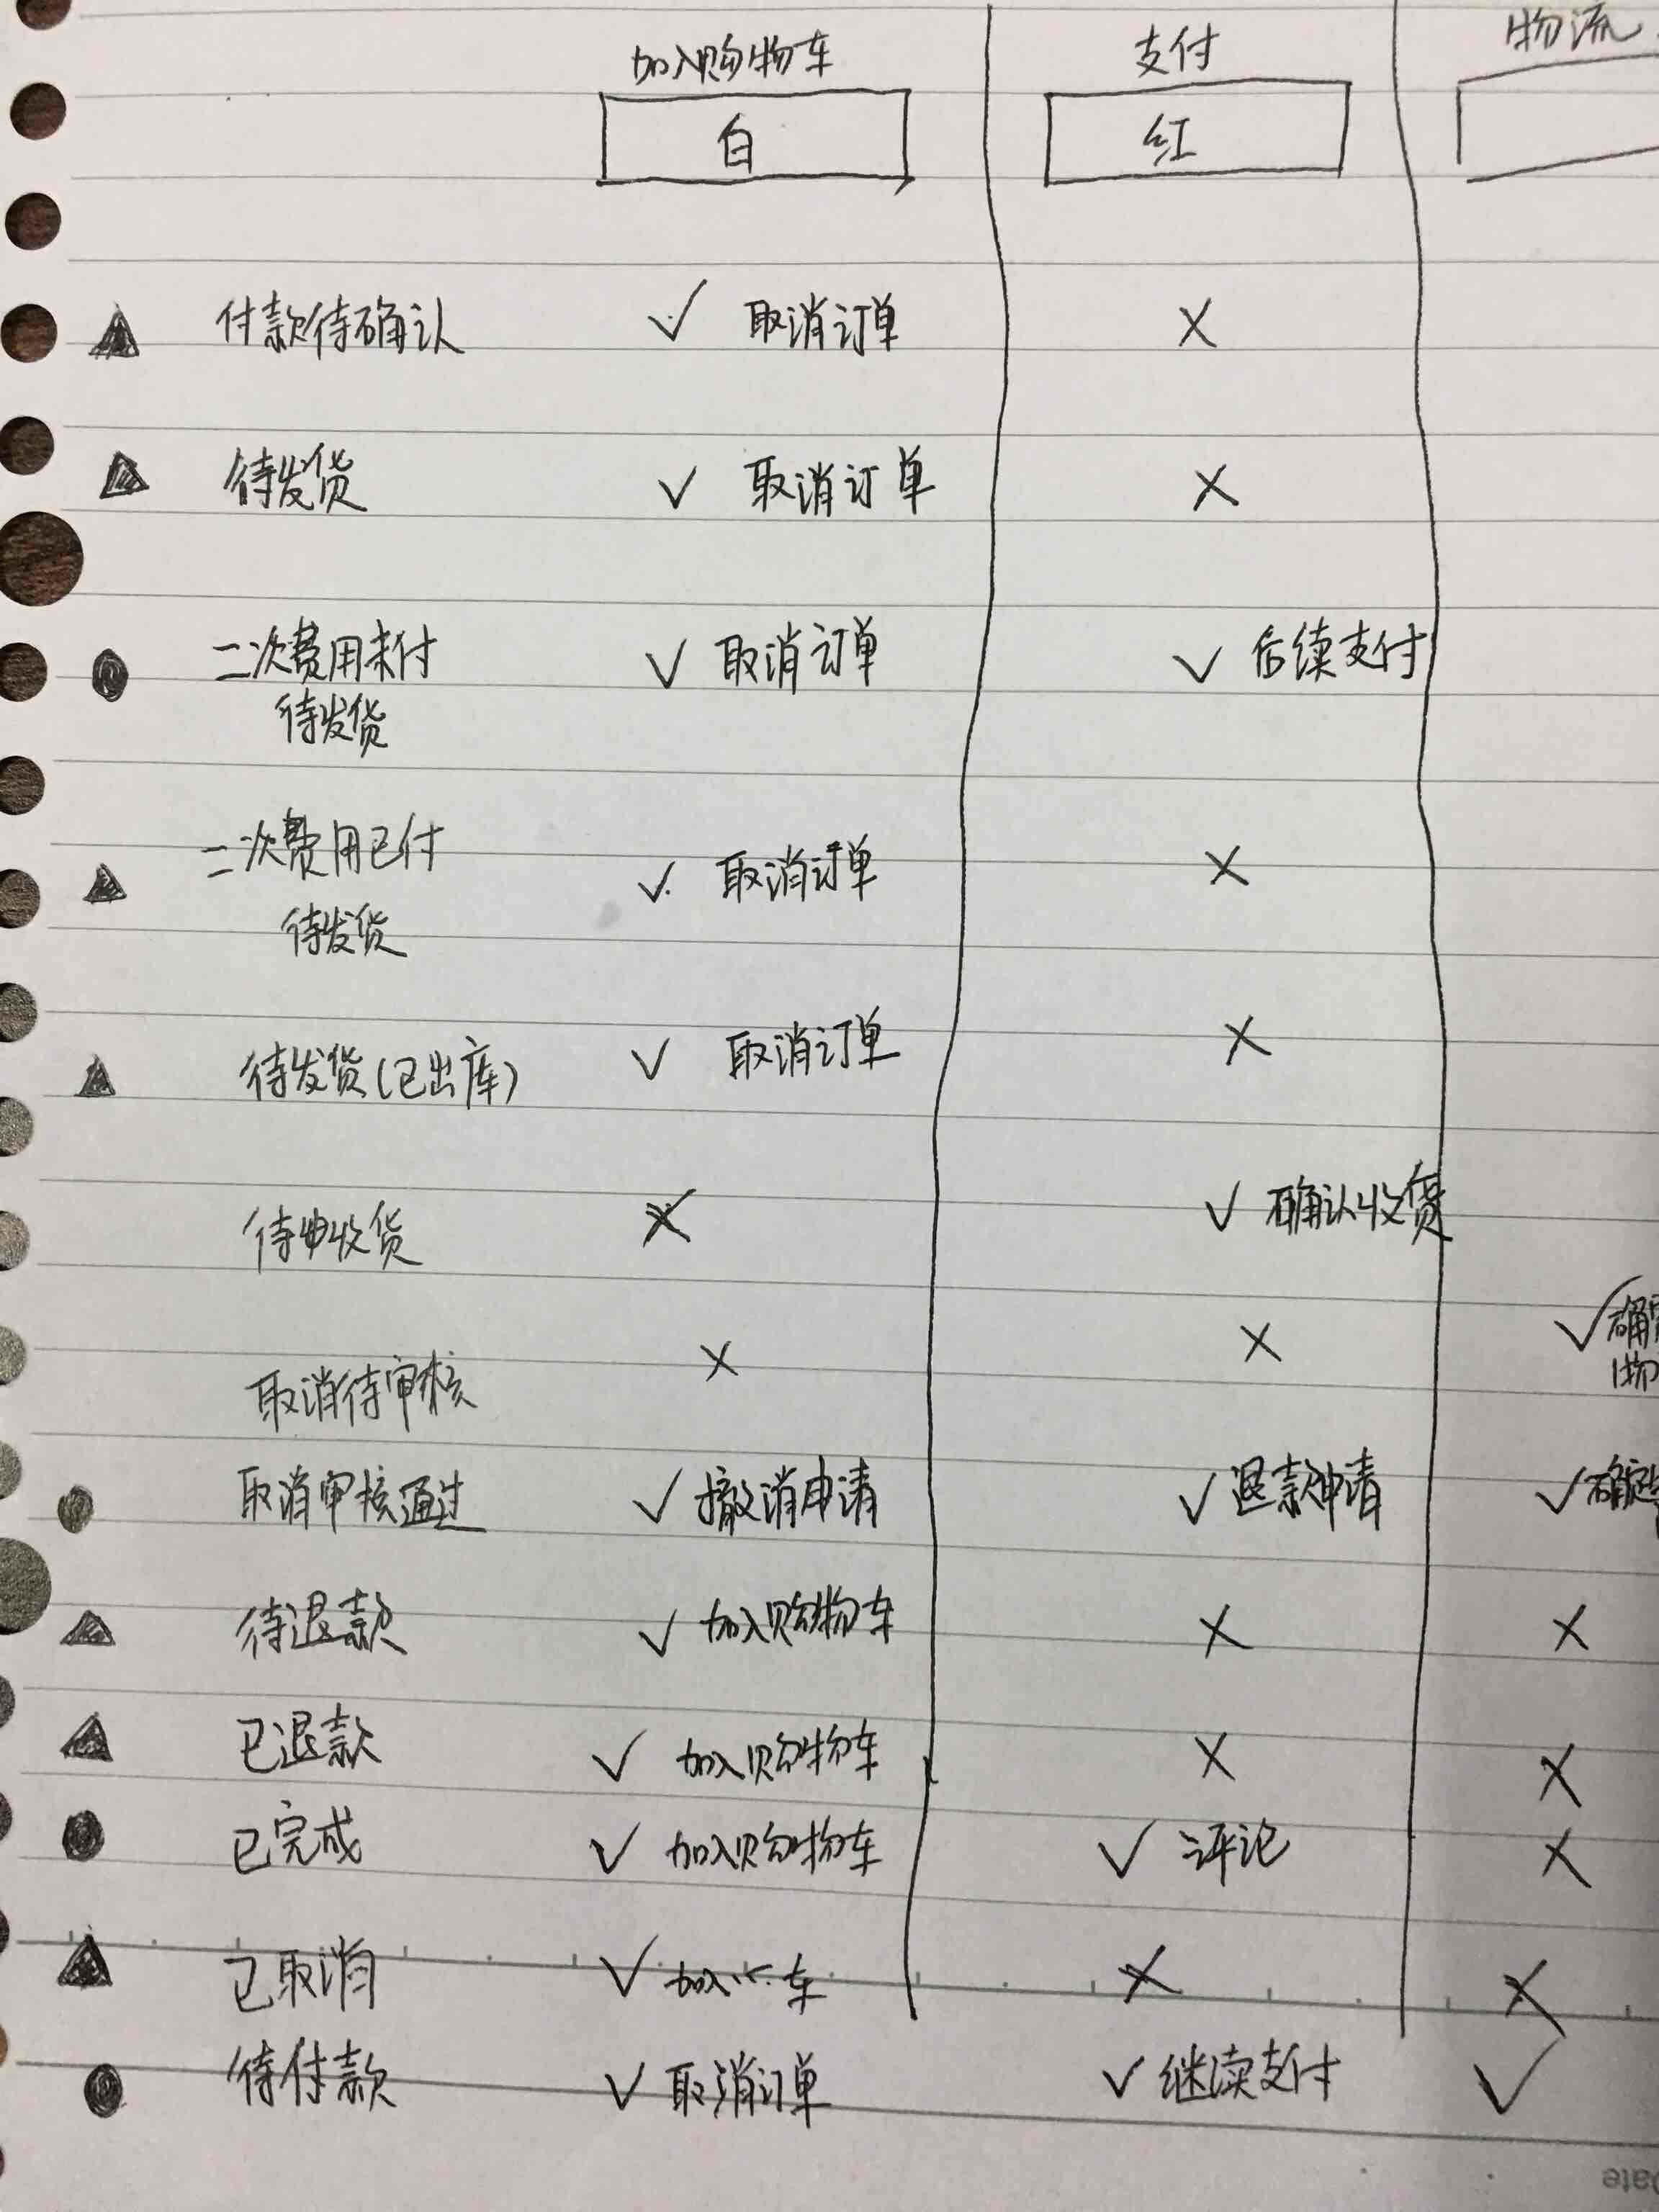 加入购物车 支付 物流
白 红
付款待确认 √ 取消订单 ×
待发货 √ 取消订单 ×
二次费用未付 √ 取消订单 √ 后续支付
待发货
二次费用已付 √ 取消订单 ×
待发货
待发货(已出库) √ 取消订单 ×
待收货 × √ 确认收货
取消待审核 × × √
取消审核通过 √ 撤消申请 √ 退款申请 √
待退款 √ 加入购物车 × ×
已退款 √ 加入购物车 × ×
已完成 √ 加入购物车 √ 评论 ×
已取消 √ 加入…车 × ×
待付款 √ 取消订单 √ 继续支付 √
Date